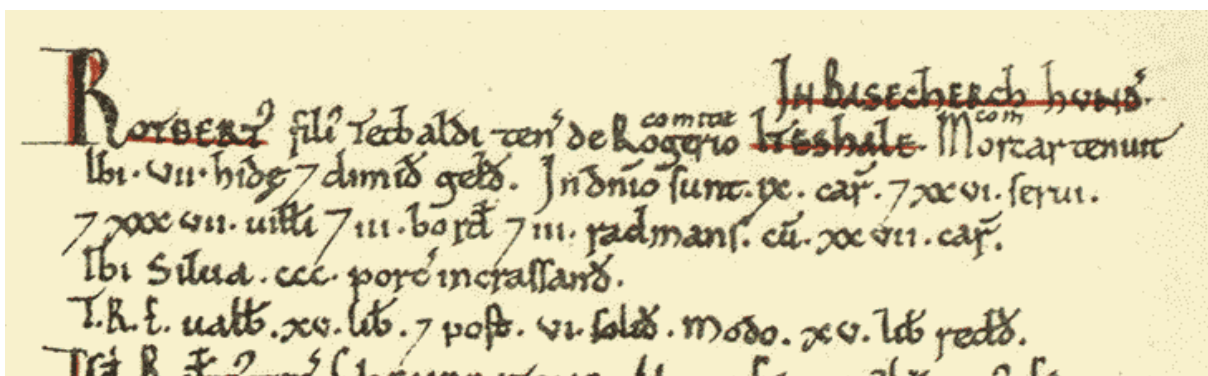 In Bisecherch hund'.
Rotbert' fili' Tetbaldi ten' de Rogerio comitat Iteshale. Morcar com tenuit
Ibi . vii . hidę 7 dimiđ gelđ . In dn̄io sunt . ix . car̄ . 7 xxvi . serui .
7 xxxvii . uilƚi 7 iii . borđ 7 iii . radmans . cū . xxvii . car̄ .
Ibi Silua . ccc . porc' incrassanđ .
T.R.E. ualƀ . xv . liƀ . 7 post . vi . soliđ . Modo . xv . liƀ redđ .